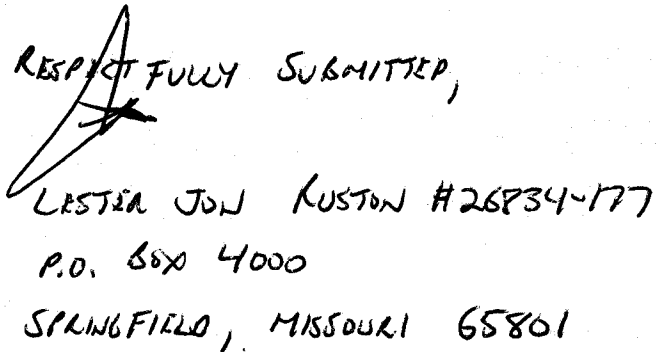 RESPECTFULLY SUBMITTED,
LESTER JON RUSTON #26834-177
P.O. BOX 4000
SPRINGFIELD, MISSOURI 65801